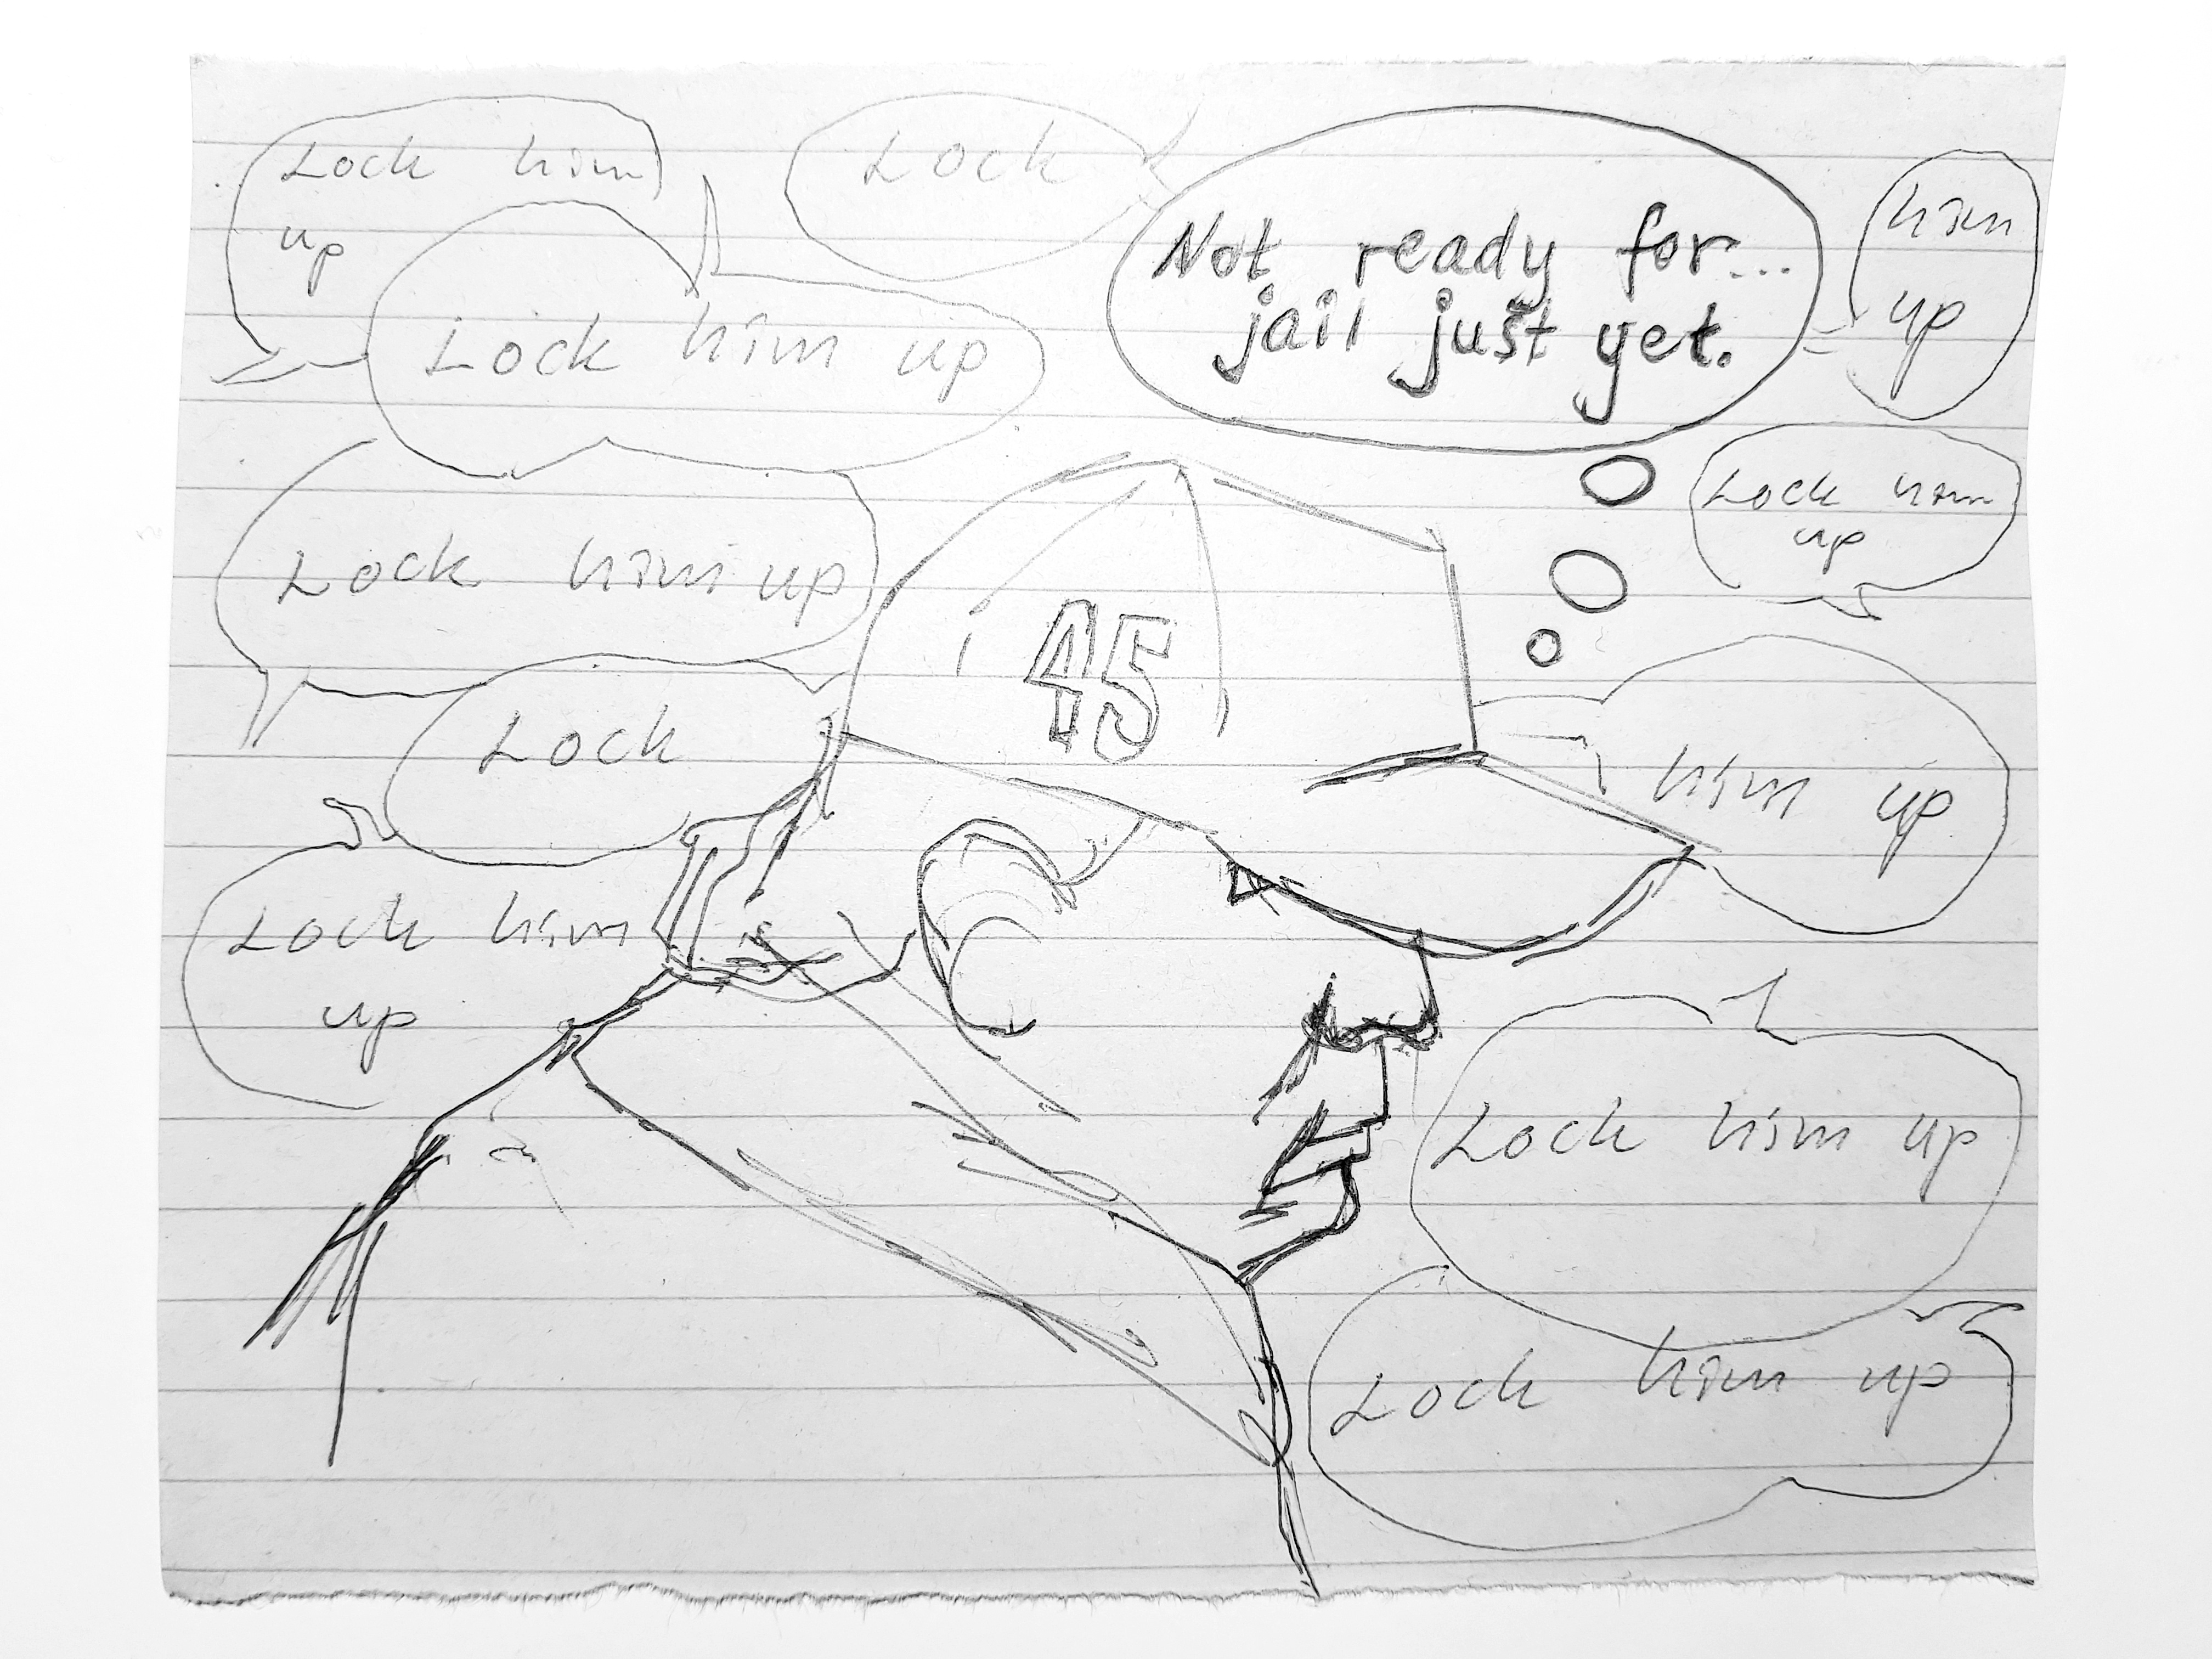 Lock him
up
Lock
Not ready for...
jail just yet.
him
up
Lock him up
Lock him
up
Lock him up
45
Lock
him up
Lock him
up
Lock him up
Lock him up